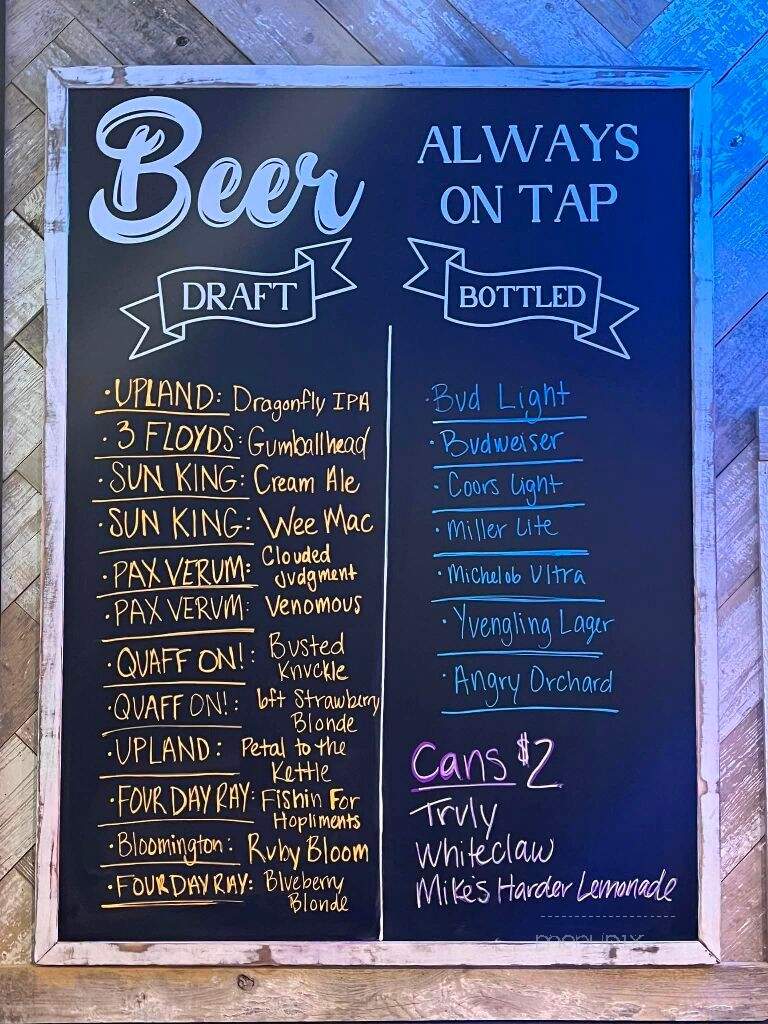 Beer
ALWAYS
ON TAP
DRAFT
BOTTLED
·UPLAND: Dragonfly IPA
·3 FLOYDS: Gumballhead
·SUN KING: Cream Ale
·SUN KING: Wee Mac
·PAX VERUM: Clouded
Judgment
·PAX VERUM: Venomous
·QUAFF ON!: Busted
Knuckle
·QUAFF ON!: 6ft Strawberry
Blonde
·UPLAND: Petal to the
Kettle
·FOUR DAY RAY: Fishin For
Hopliments
·Bloomington: Ruby Bloom
·FOUR DAY RAY: Blueberry
Blonde
·Bud Light
·Budweiser
·Coors Light
·Miller Lite
·Michelob Ultra
·Yuengling Lager
·Angry Orchard
Cans $2
Truly
Whiteclaw
Mike's Harder Lemonade